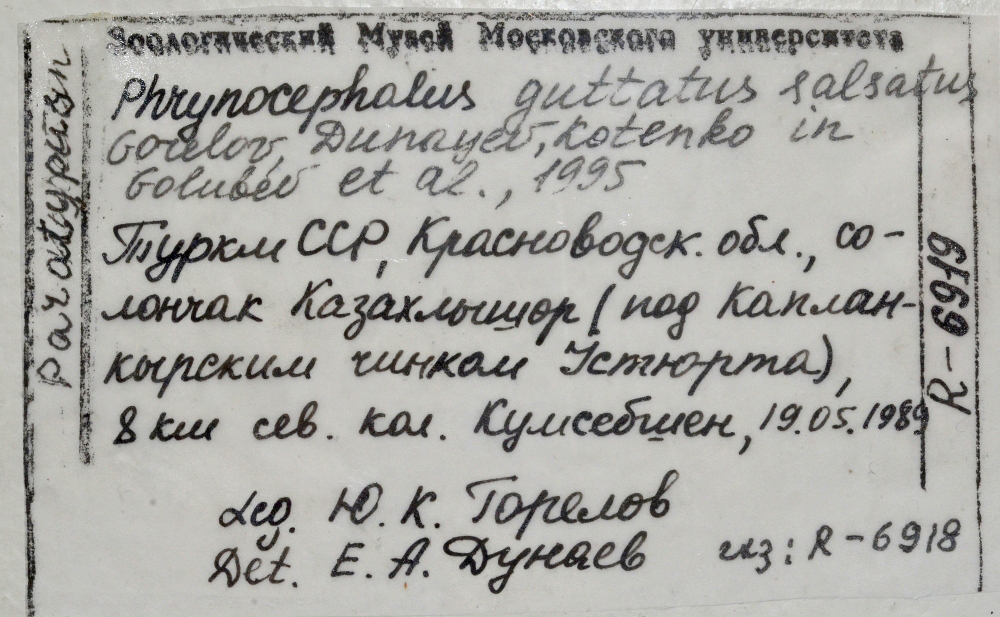 Зоологический Музей Московского университета
Paratypusn
Phrynocephalus guttatus salsatus
Gorelov, Dunayev, Kotenko in
Golubev et al., 1995
Туркм ССР, Красноводск. обл., со-
лончак Казахлышор (под Каплан-
кырским чинком Устюрта),
8 км сев. кол. Кумсебшен, 19.05.1989
R-6919
Leg. Ю. К. Горелов
Det. Е. А. Дунаев
из: R-6918